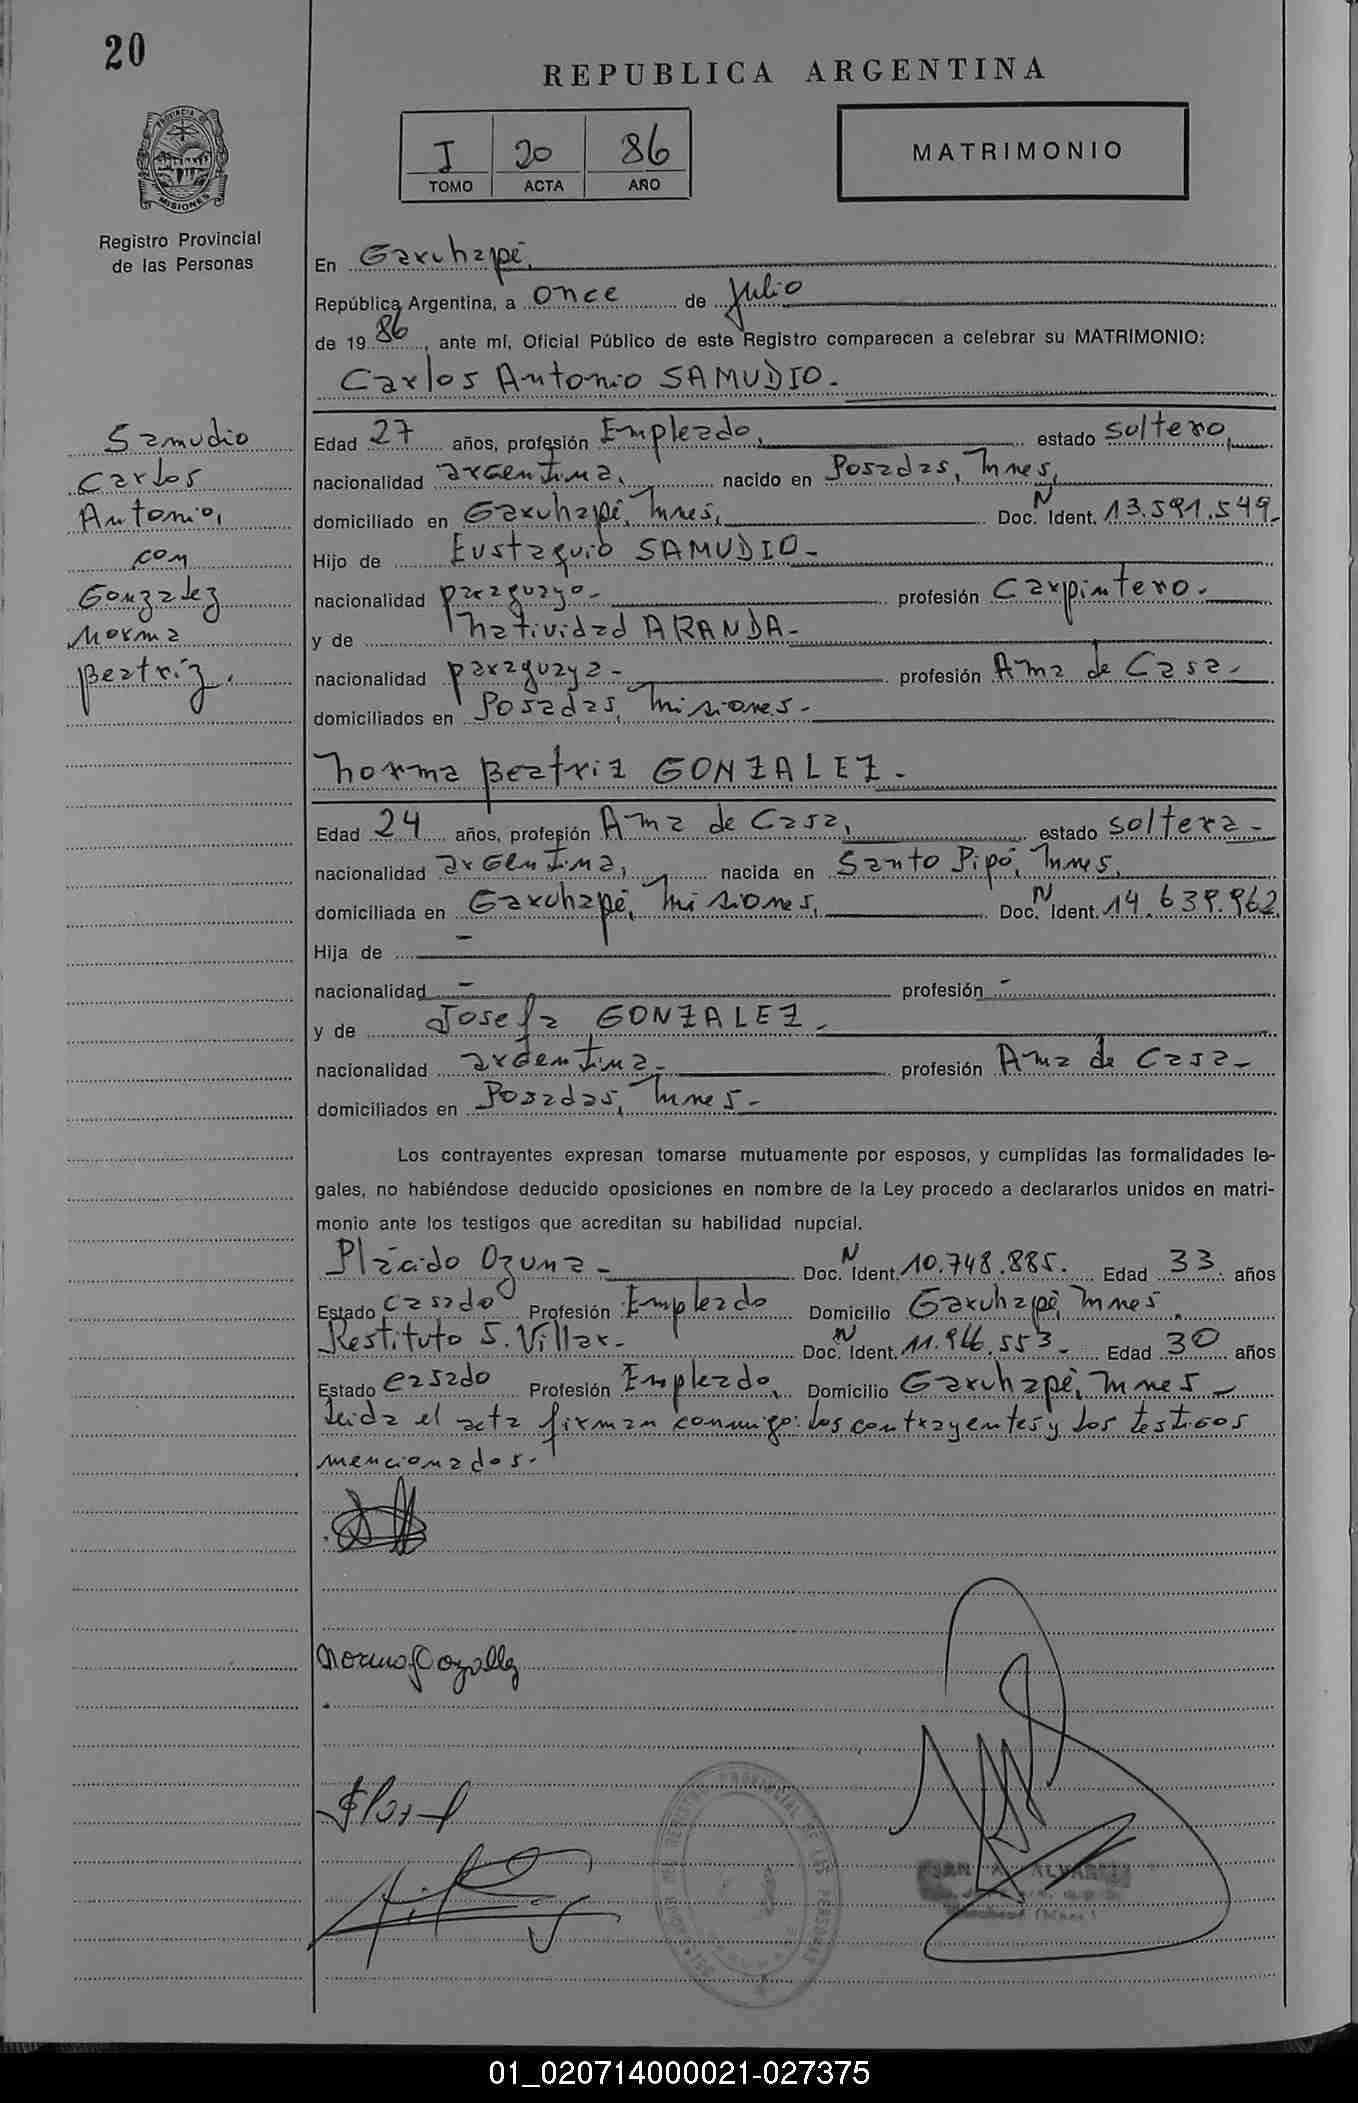 20
REPUBLICA ARGENTINA
I 20 86
TOMO ACTA AÑO
MATRIMONIO
PROVINCIA DE
MISIONES
Registro Provincial
de las Personas
En Garuhapé,
República Argentina, a once de Julio
de 1986, ante mí, Oficial Público de este Registro comparecen a celebrar su MATRIMONIO:
Carlos Antonio SAMUDIO.-
Samudio
Carlos
Antonio,
con
Gonzalez
Norma
Beatriz.
Edad 27 años, profesión Empleado, estado soltero,
nacionalidad argentina, nacido en Posadas, Mnes,
domiciliado en Garuhapé, Mnes, Doc. N Ident. 13.591.549.-
Hijo de Eustaquio SAMUDIO.-
nacionalidad paraguayo.- profesión Carpintero.-
y de Natividad ARANDA.-
nacionalidad paraguaya.- profesión Ama de Casa.-
domiciliados en Posadas, Misiones.-
Norma Beatriz GONZALEZ.-
Edad 24 años, profesión Ama de Casa, estado soltera.-
nacionalidad argentina, nacida en Santo Pipó, Mnes,
domiciliada en Garuhapé, Misiones, Doc. N Ident. 14.639.962
Hija de -
nacionalidad - profesión -
y de Josefa GONZALEZ.-
nacionalidad argentina.- profesión Ama de Casa.-
domiciliados en Posadas, Mnes.-
Los contrayentes expresan tomarse mutuamente por esposos, y cumplidas las formalidades le-
gales, no habiéndose deducido oposiciones en nombre de la Ley procedo a declararlos unidos en matri-
monio ante los testigos que acreditan su habilidad nupcial.
Plácido Ozuna.- Doc. N Ident. 10.748.885. Edad 33 años
Estado casado Profesión Empleado Domicilio Garuhapé, Mnes.
Restituto S. Villar.- Doc. N Ident. Edad 30 años
Estado casado Profesión Empleado, Domicilio Garuhapé, Mnes.-
Leida el acta firman conmigo: los contrayentes y los testigos
mencionados.-
Norma Gozallez
REGISTRO PROVINCIAL DE LAS PERSONAS
ALVAREZ
01_020714000021-027375